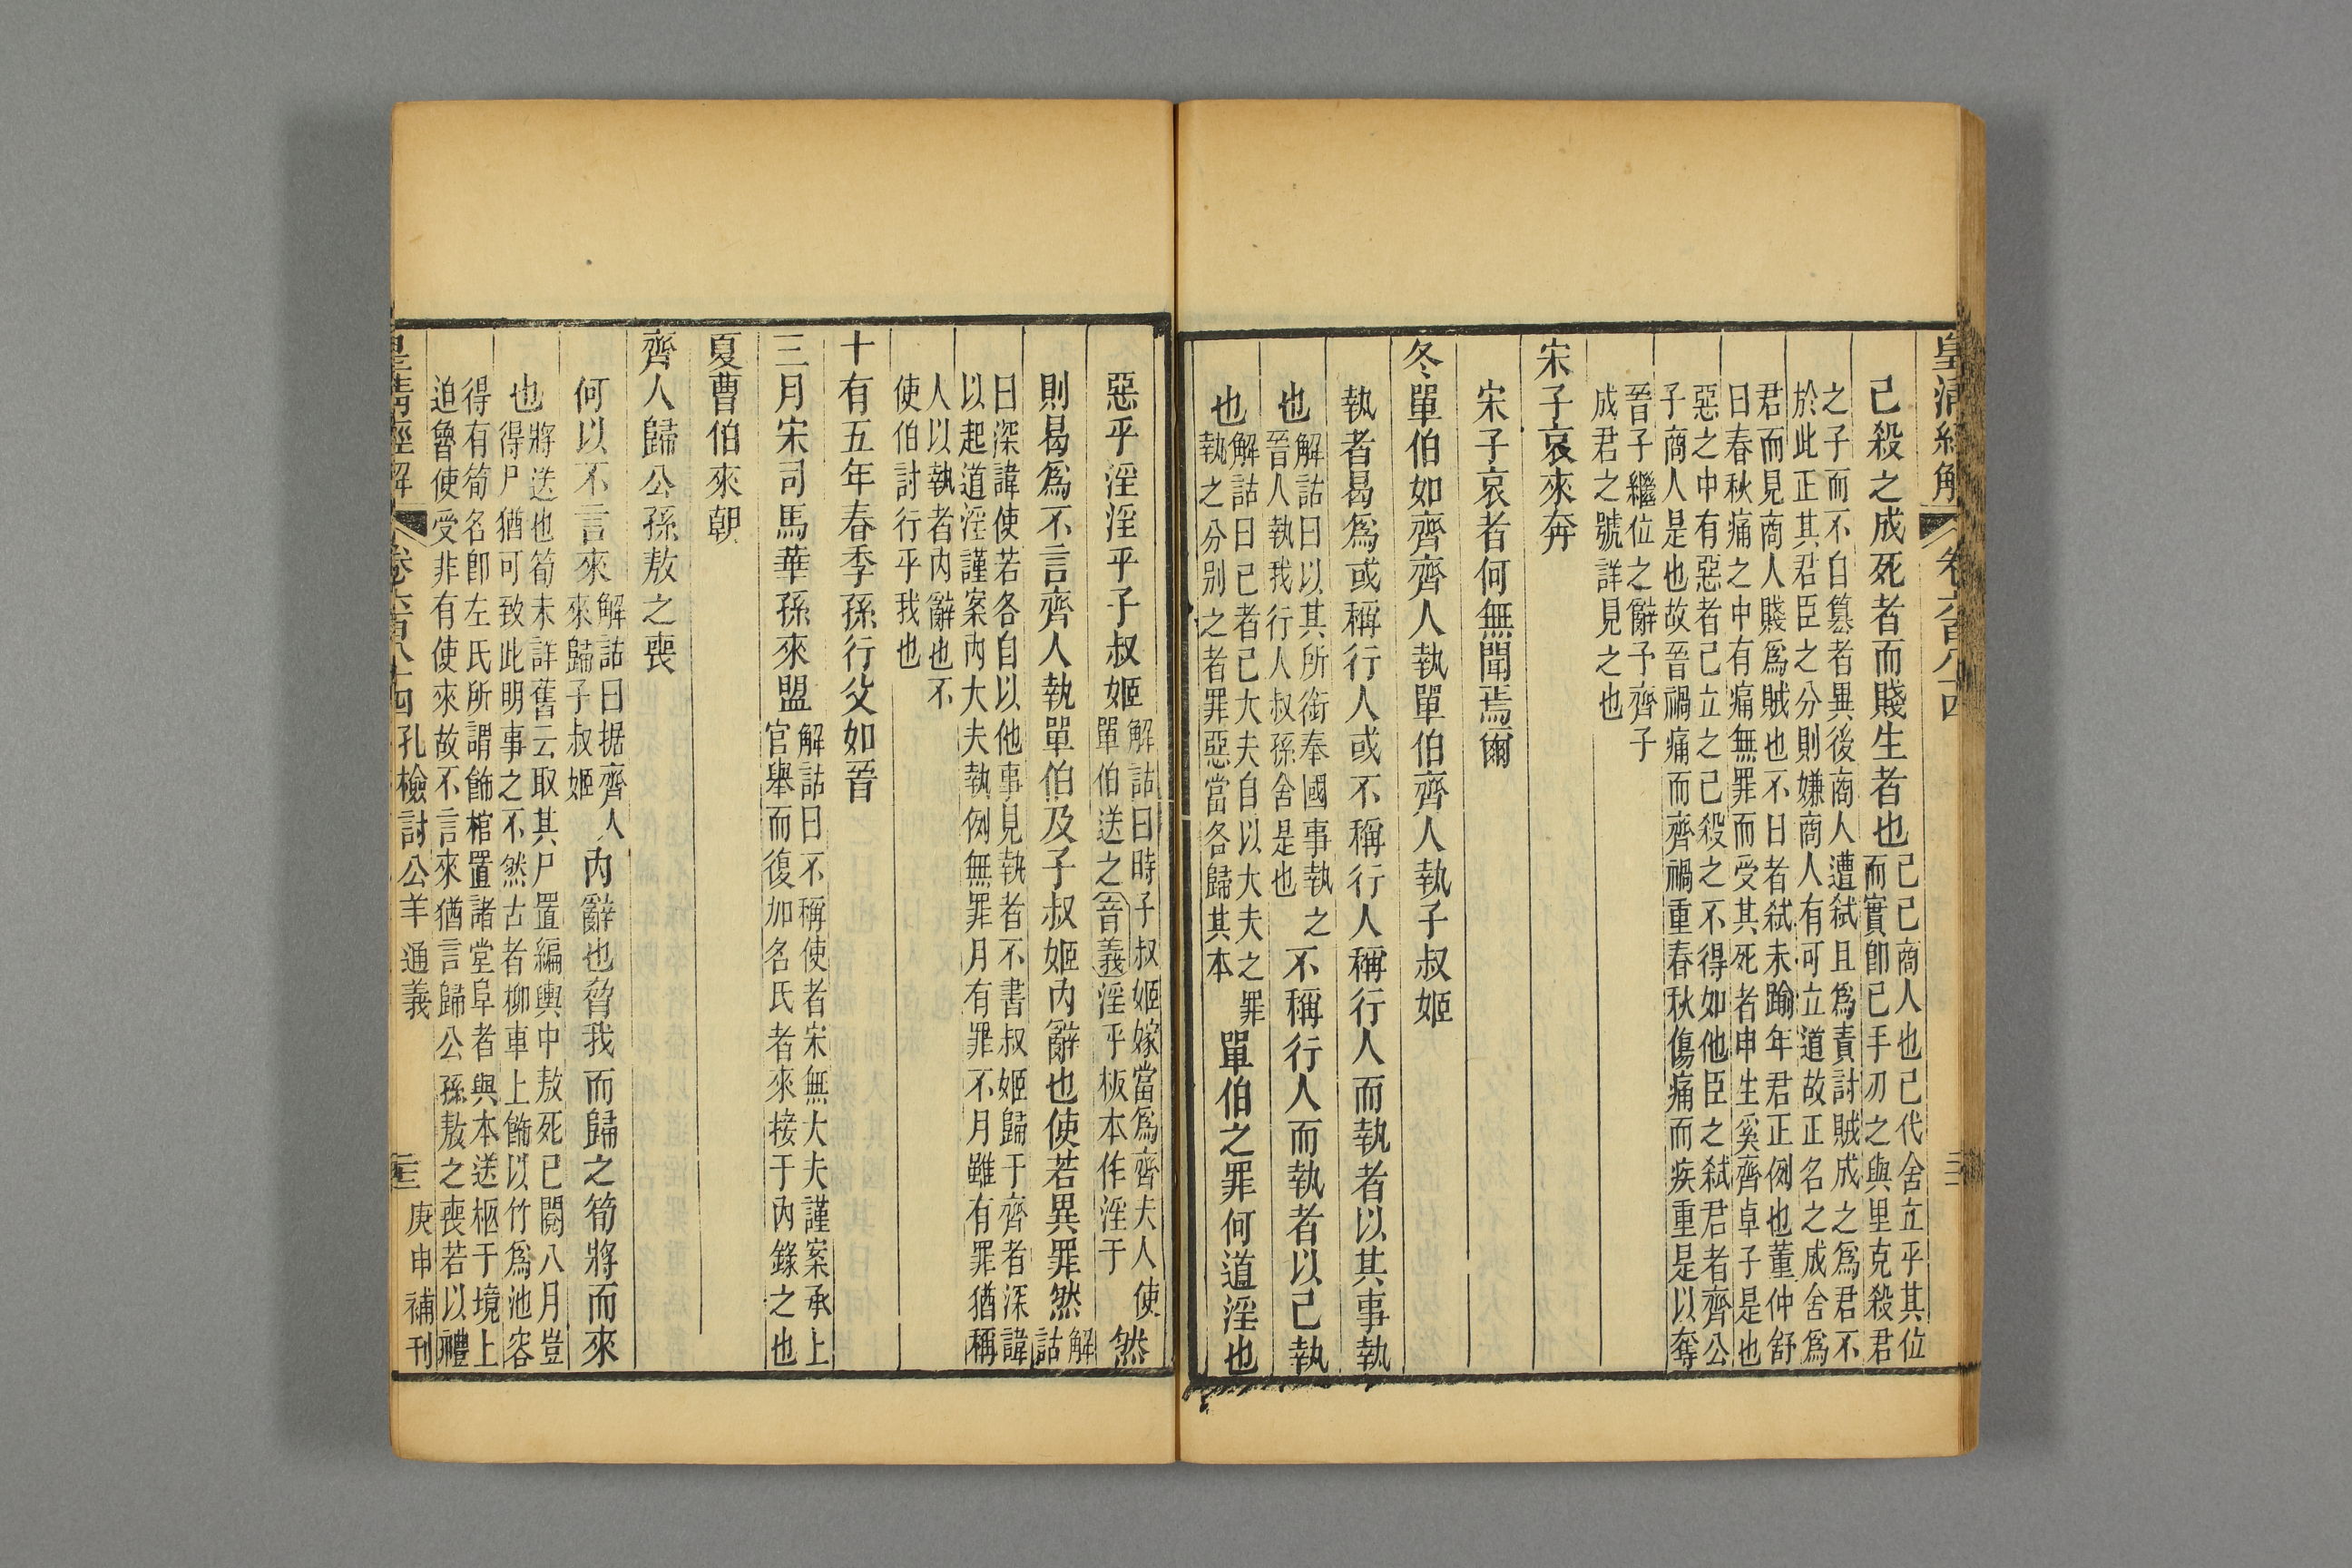 皇清經解 卷六百八十四
己殺之成死者而賤生者也己己商人也己代舍立乎其位
而實卽己手刃之與里克殺君
之子而不自簒者異後商人遭弑且爲責討賊成之爲君不
於此正其君臣之分則嫌商人有可立道故正名之成舍爲
君而見商人賤爲賊也不日者弑未踰年君正例也董仲舒
日春秋痛之中有痛無罪而受其死者申生奚齊卓子是也
惡之中有惡者己立之己殺之不得如他臣之弑君者齊公
子商人是也故晉禍痛而齊禍重春秋傷痛而疾重是以奪
晉子繼位之辭予齊子
成君之號詳見之也
宋子哀來奔
宋子哀者何無聞焉爾
冬單伯如齊齊人執單伯齊人執子叔姬
執者曷爲或稱行人或不稱行人稱行人而執者以其事執
也解詁曰以其所銜奉國事執之
晉人執我行人叔孫舍是也不稱行人而執者以己執
也解詁曰己者己大夫自以大夫之罪
執之分别之者罪惡當各歸其本單伯之罪何道淫也
惡乎淫淫乎子叔姬解詁曰時子叔姬嫁當爲齊夫人使
單伯送之音義淫乎板本作淫于然
則曷爲不言齊人執單伯及子叔姬内辭也使若異罪然解
詁
曰深諱使若各自以他事見執者不書叔姬歸于齊者深諱
以起道淫謹案内大夫執例無罪月有罪不月雖有罪猶稱
人以執者内辭也不
使伯討行乎我也
十有五年春季孫行父如晉
三月宋司馬華孫來盟解詁曰不稱使者宋無大夫謹案承上
官舉而復加名氏者來接于内錄之也
夏曹伯來朝
齊人歸公孫敖之喪
何以不言來解詁曰据齊人
來歸子叔姬内辭也脅我而歸之筍將而來
也將送也筍未詳舊云取其尸置編輿中敖死已閱八月豈
得尸猶可致此明事之不然古者柳車上飾以竹爲池容
得有筍名卽左氏所謂飾棺置諸堂阜者與本送柩于境上
迫魯使受非有使來故不言來猶言歸公孫敖之喪若以禮
皇清經解 卷六百八十四 孔檢討公羊通義 三 庚申補刊